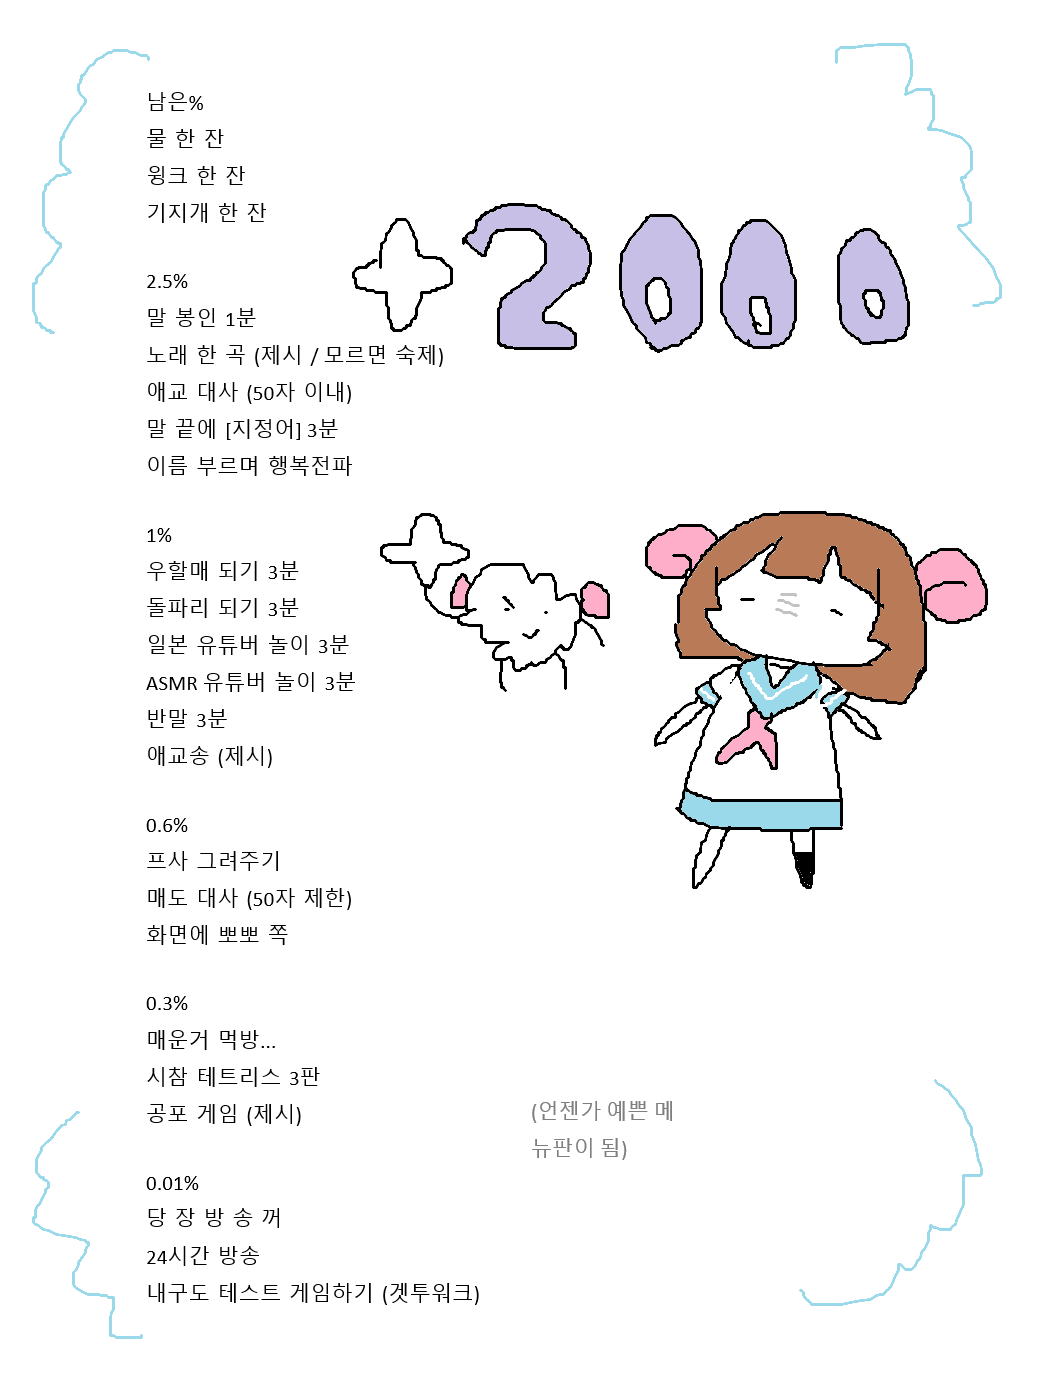 남은%
물 한 잔
윙크 한 잔
기지개 한 잔
+2000
2.5%
말 봉인 1분
노래 한 곡 (제시 / 모르면 숙제)
애교 대사 (50자 이내)
말 끝에 [지정어] 3분
이름 부르며 행복전파
1%
우할매 되기 3분
돌파리 되기 3분
일본 유튜버 놀이 3분
ASMR 유튜버 놀이 3분
반말 3분
애교송 (제시)
0.6%
프사 그려주기
매도 대사 (50자 제한)
화면에 뽀뽀 쪽
0.3%
매운거 먹방...
시참 테트리스 3판
공포 게임 (제시)
(언젠가 예쁜 메
뉴판이 됨)
0.01%
당 장 방 송 꺼
24시간 방송
내구도 테스트 게임하기 (겟투워크)